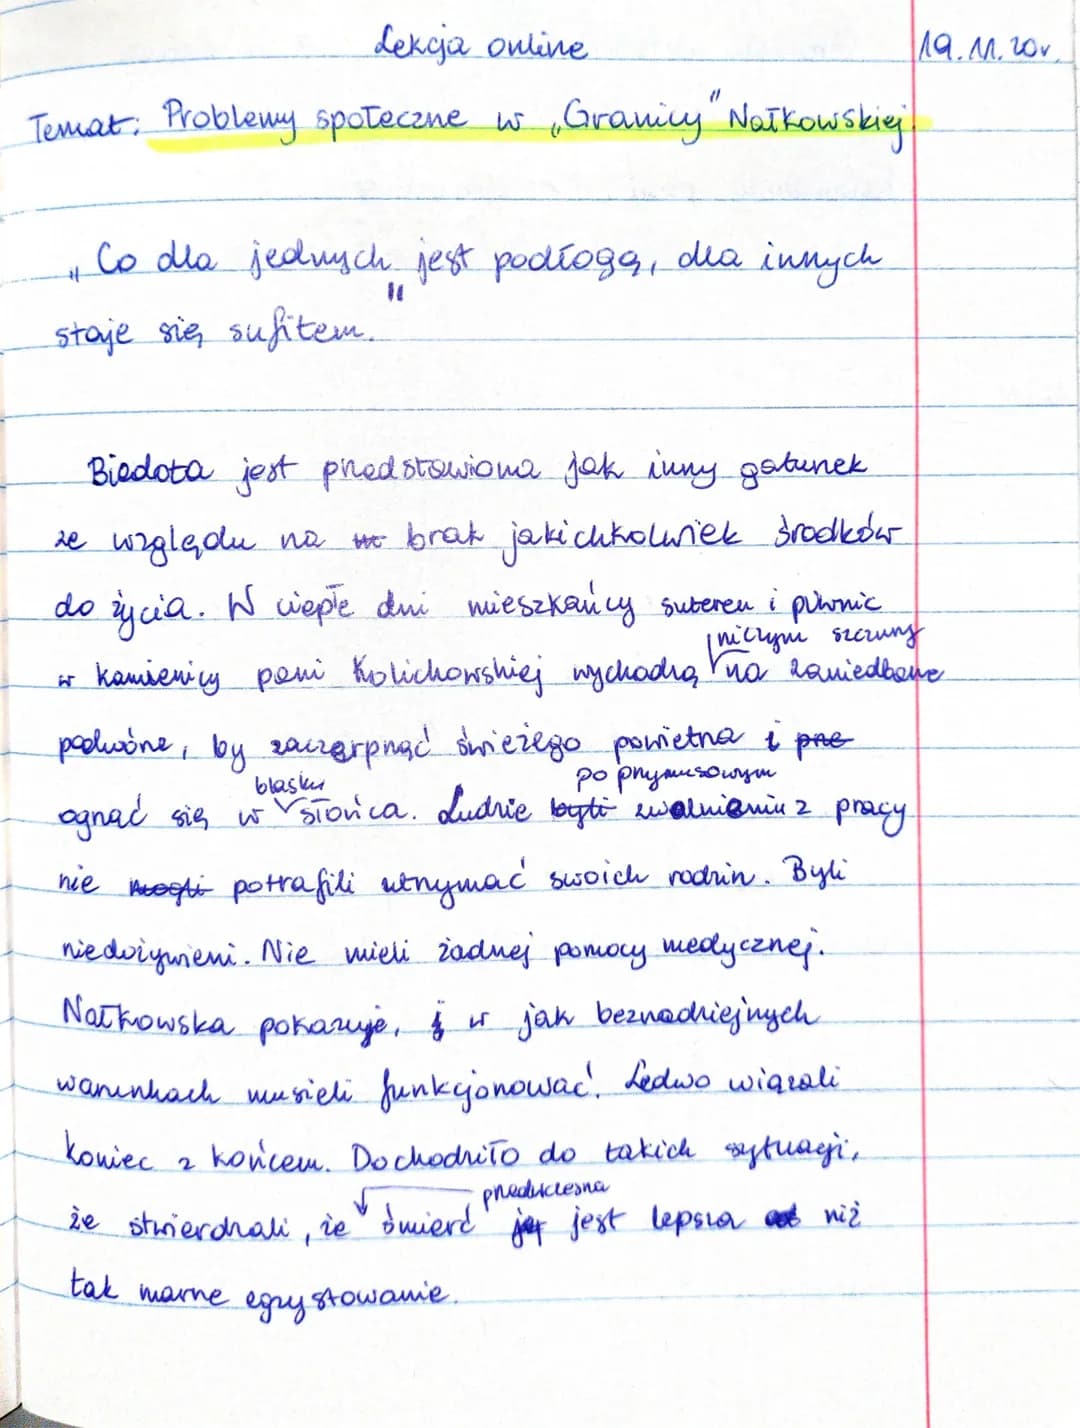 Lekcja online
19.11.20r.
Temat: Problemy społeczne w „Granicy" Nałkowskiej.
„Co dla jednych jest podłogą, dla innych
staje się sufitem."
Biedota jest przedstawiona jak inny gatunek
ze względu na brak jakichkolwiek środków
do życia. W ciepłe dni mieszkańcy suteren i piwnic
niczym szczury
w kamienicy pani Kolichowskiej wychodzą na zaniedbane
podwórze, by zaczerpnąć świeżego powietrza i pne
blasku
po przymusowym
ogrzać się w słońca. Ludzie byli zwolnieniu z pracy
nie mogli potrafili utrzymać swoich rodzin. Byli
niedożywieni. Nie mieli żadnej pomocy medycznej.
Nałkowska pokazuje, w jak beznadziejnych
warunkach musieli funkcjonować. Ledwo wiązali
koniec z końcem. Dochodziło do takich sytuacji,
przedwczesna
że stwierdzali, że śmierć jest lepsza niż
tak marne egzystowanie.